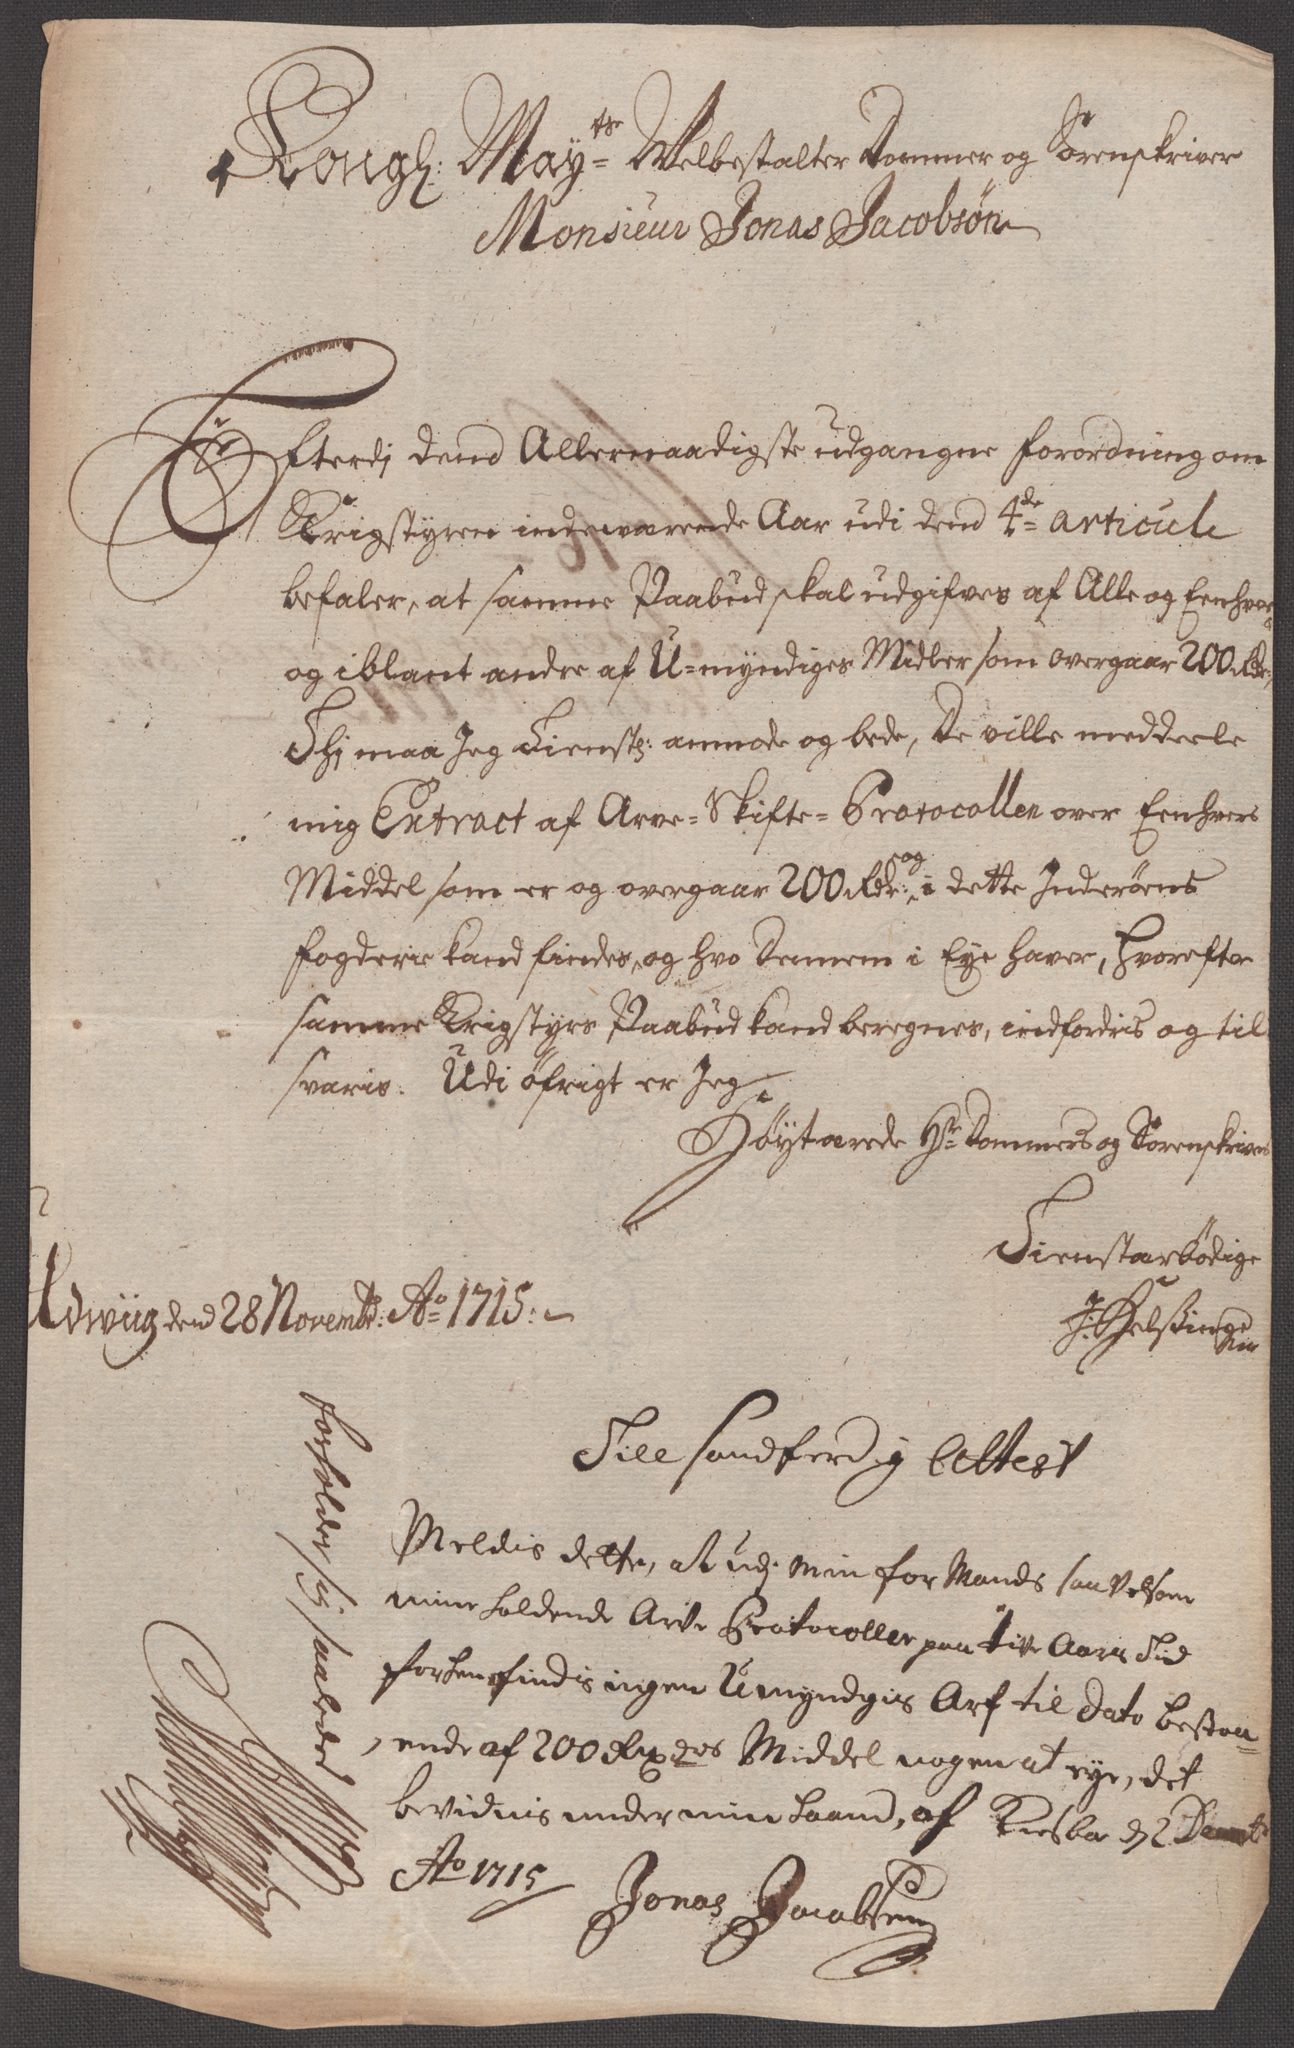 Kongl: May:ts Welbestalter Dommer og Sorenskriver
Monsieur Jonas Jacobsøn
Efterdj dend Allernaadigste udgangne forordning om
Krigstyren indeværende Aar udi dend 4de articul
befaler, at samme Paabud skal udgifves af Alle og Eenhver
og iblant andre af U-myndiges Midler som overgaar 200 Rdr:,
Thj maa Jeg Tienstl: anmode og bede, De ville meddeele
mig Extract af Arve-Skifte-Protocollen over Eenhvers
Middel som er og overgaar 200 Rdr: og i dette Inderøens
fogderie kand findes, og hvo dennem i Eye haver, hvorefter
samme Krigstyrs Paabud kand beregnes, indfordris og til
svaris. Udi øfrigt er Jeg
Høyt ærede Hr Dommers og Sorenskrivers
Tienstærbødige
dend 28 Novembr: Ao 1715.
Till sandferdig Attest
Meldis dette, at udj min forMands saavelsom
mine holdende Arve Protocoller paa tive Aars Tid
forhen findis ingen Umyndgis Arf til dato bestaa-
ende af 200 Rixdrs Middel nogen at eye, det
bevidnis under min haand, af d 2 Decemb
Ao 1715 Jonas Jacobsen
forholder sig saaledes